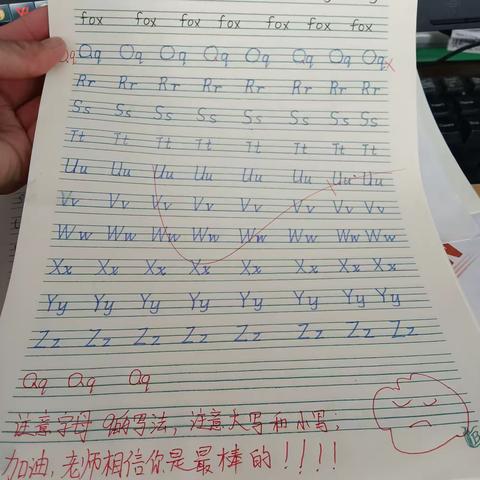 fox fox fox fox fox fox fox
Qq Qq Qq Qq Qq Qq Qq Qq
Rr Rr Rr Rr Rr Rr Rr Rr
Ss Ss Ss Ss Ss Ss Ss Ss
Tt Tt Tt Tt Tt Tt Tt Tt
Uu Uu Uu Uu Uu Uu Uu Uu
Vv Vv Vv Vv Vv Vv Vv Vv
Ww Ww Ww Ww Ww Ww Ww Ww
Xx Xx Xx Xx Xx Xx Xx Xx
Yy Yy Yy Yy Yy Yy Yy Yy
Zz Zz Zz Zz Zz Zz Zz Zz
Qq Qq Qq
注意字母 q的写法，注意大写和小写；
加油，老师相信你是最棒的！！！！